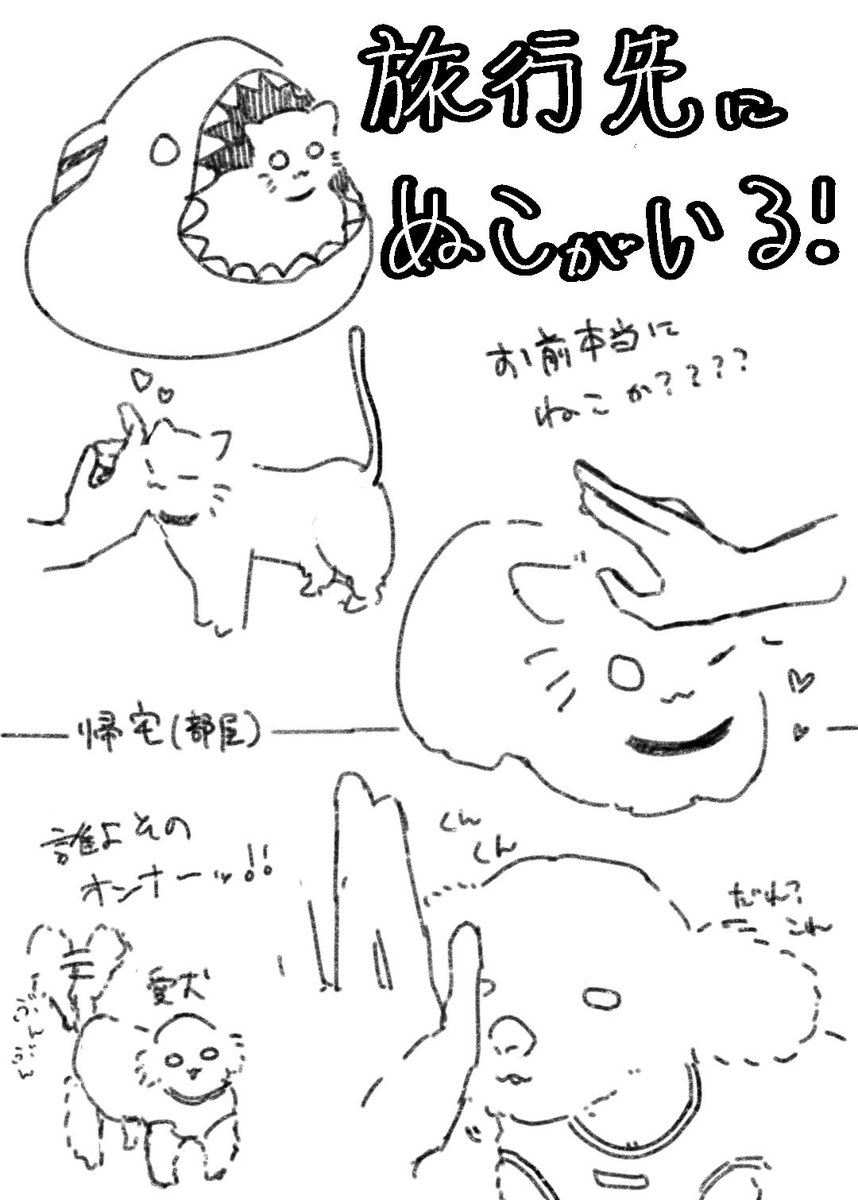 旅行先に
ぬこがいる!
お前本当に
ねこか????
帰宅(部屋)
誰よその
オンナーッ!!
愛犬
くん
くん
だれ?
これ